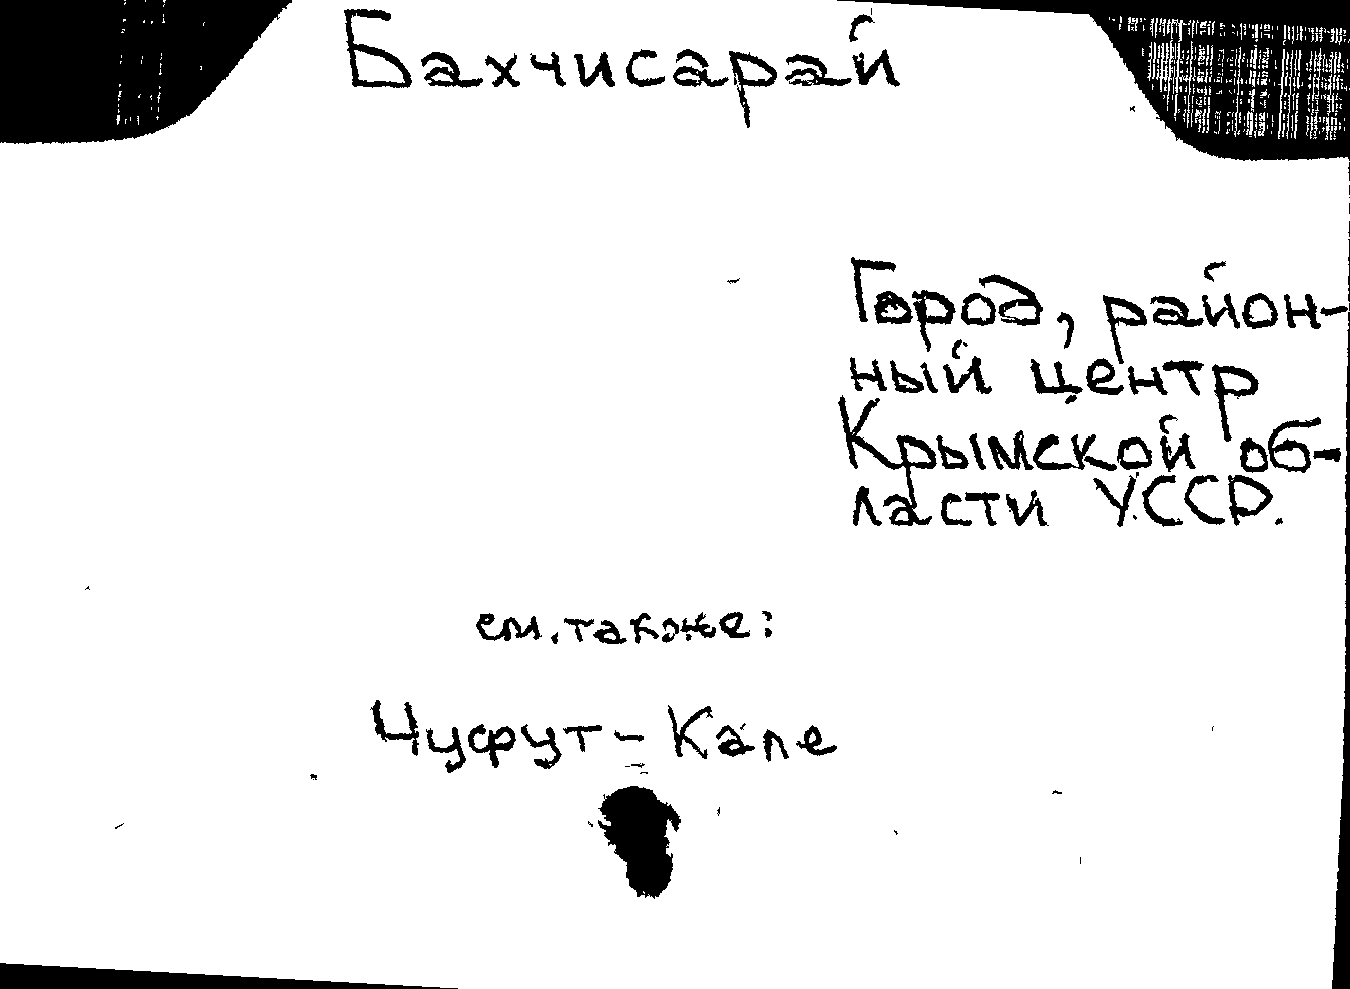 Бахчисарай
Город, район-
ный центр
Крымской об-
ласти УССР.
см. также:
Чуфут-Кале